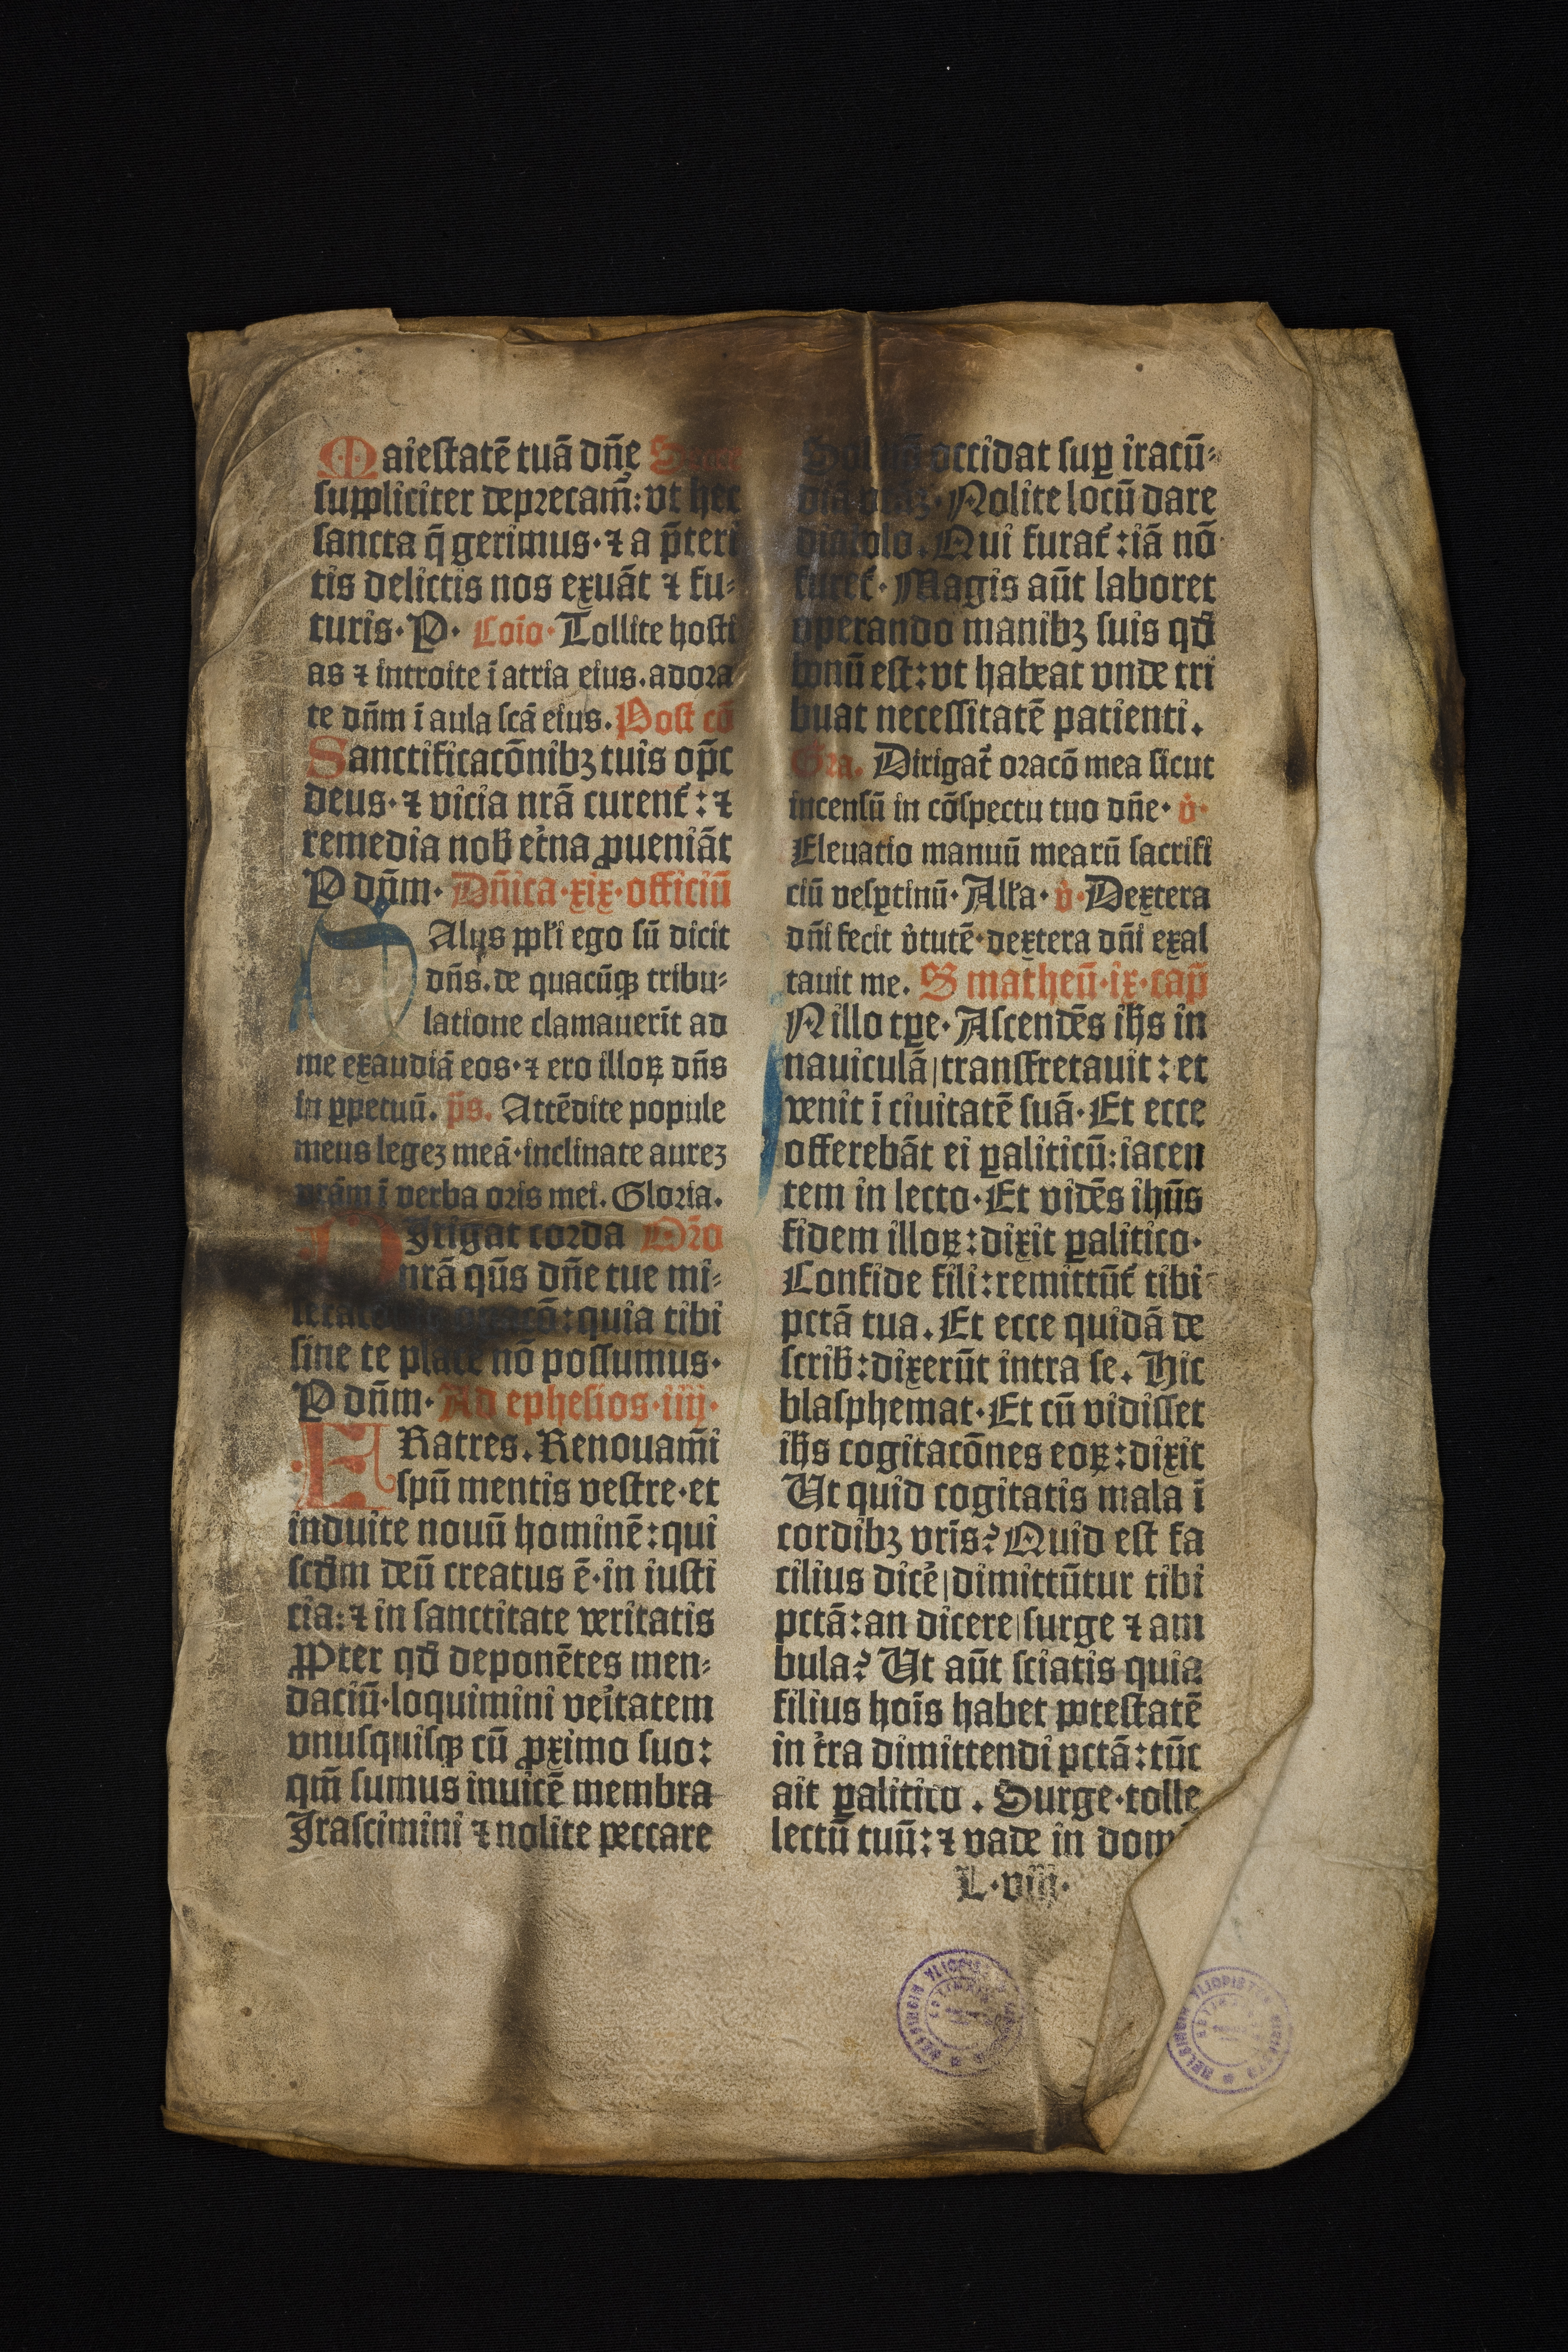 Maiestatē tuā dn̄e Secret
suppliciter deprecam̄: vt hec
sancta q̄ gerimus · ⁊ a p̄teri
tis delictis nos exuāt ⁊ fu⸗
turis · P · Cōio · Tollite hosti
as ⁊ introite ī atria eius. adora
te dn̄m ī aula scā eius. Post cō
Sanctificacōnibꝫ tuis op̄c
deus · ⁊ vicia nr̄a curent᷑: ⁊
remedia nob̄ et̓na ꝓueniāt
P dn̄m · Dn̄ica · xix · officiū
Alus pp̄li ego sū dicit
dn̄s. de quacūqꝫ tribu⸗
latione clamauerīt ad
me exaudiā eos · ⁊ ero illoꝝ dn̄s
in ꝑpetuū. p̄s. Attēdite popule
meus legeꝫ meā · inclinate aureꝫ
vrām ī verba oris mei. Gloria.
DJrigat corda Or̄o
nr̄a qūs dn̄e tue mi⸗
quia tibi
sine te place nō possumus ·
P dn̄m · Ad ephesios · iiij ·
FRatres. Renouam̄i
spū mentis vestre · et
induite nouū hominē: qui
scd̄m deū creatus ē · in iusti
cia: ⁊ in sanctitate veritatis
PPter qd̄ deponētes men⸗
daciū · loquimini ve̓itatem
vnusquisqꝫ cū ꝓximo suo:
qm̄ sumus inuicē membra
Jrascimini ⁊ nolite peccare
Sol occidat suꝑ iracū⸗
Nolite locū dare
diabolo. Qui furat᷑: iā nō
furet᷑ · Magis aūt laboret
operando manibꝫ suis qd̄
bonū est: vt habeat vnde tri
buat necessitatē patienti.
Gra. Dirigat᷑ oracō mea sicut
incensū in cōspectu tuo dn̄e · v̓ ·
Eleuatio manuū mearū sacrifi
ciū vesꝑtinū · Alla · v̓ · Dextera
dn̄i fecit v̓tutē · dextera dn̄i exal
tauit me. S matheū · ix · cap̄
N illo tꝑe · Ascendēs ih̄s in
nauiculā / transfretauit: et
venit ī ciuitatē suā · Et ecce
offerebāt ei ꝑaliticū: iacen
tem in lecto · Et vidēs ihūs
fidem illoꝝ: dixit ꝑalitico ·
Confide fili: remittūt᷑ tibi
pctā tua. Et ecce quidā de
scrib̄: dixerūt intra se. Hic
blasphemat · Et cū vidisset
ih̄s cogitacōnes eoꝝ: dixit
Ut quid cogitatis mala ī
cordibꝫ vrīs? Quid est fa
cilius dicē / dimittūtur tibi
pctā: an dicere / surge ⁊ am
bula? Ut aūt sciatis quia
filius hoīs habet potestatē
in t̓ra dimittendi pctā: tūc
ait ꝑalitico. Surge · tolle
lectū tuū: ⁊ vade in dom
L · viij ·